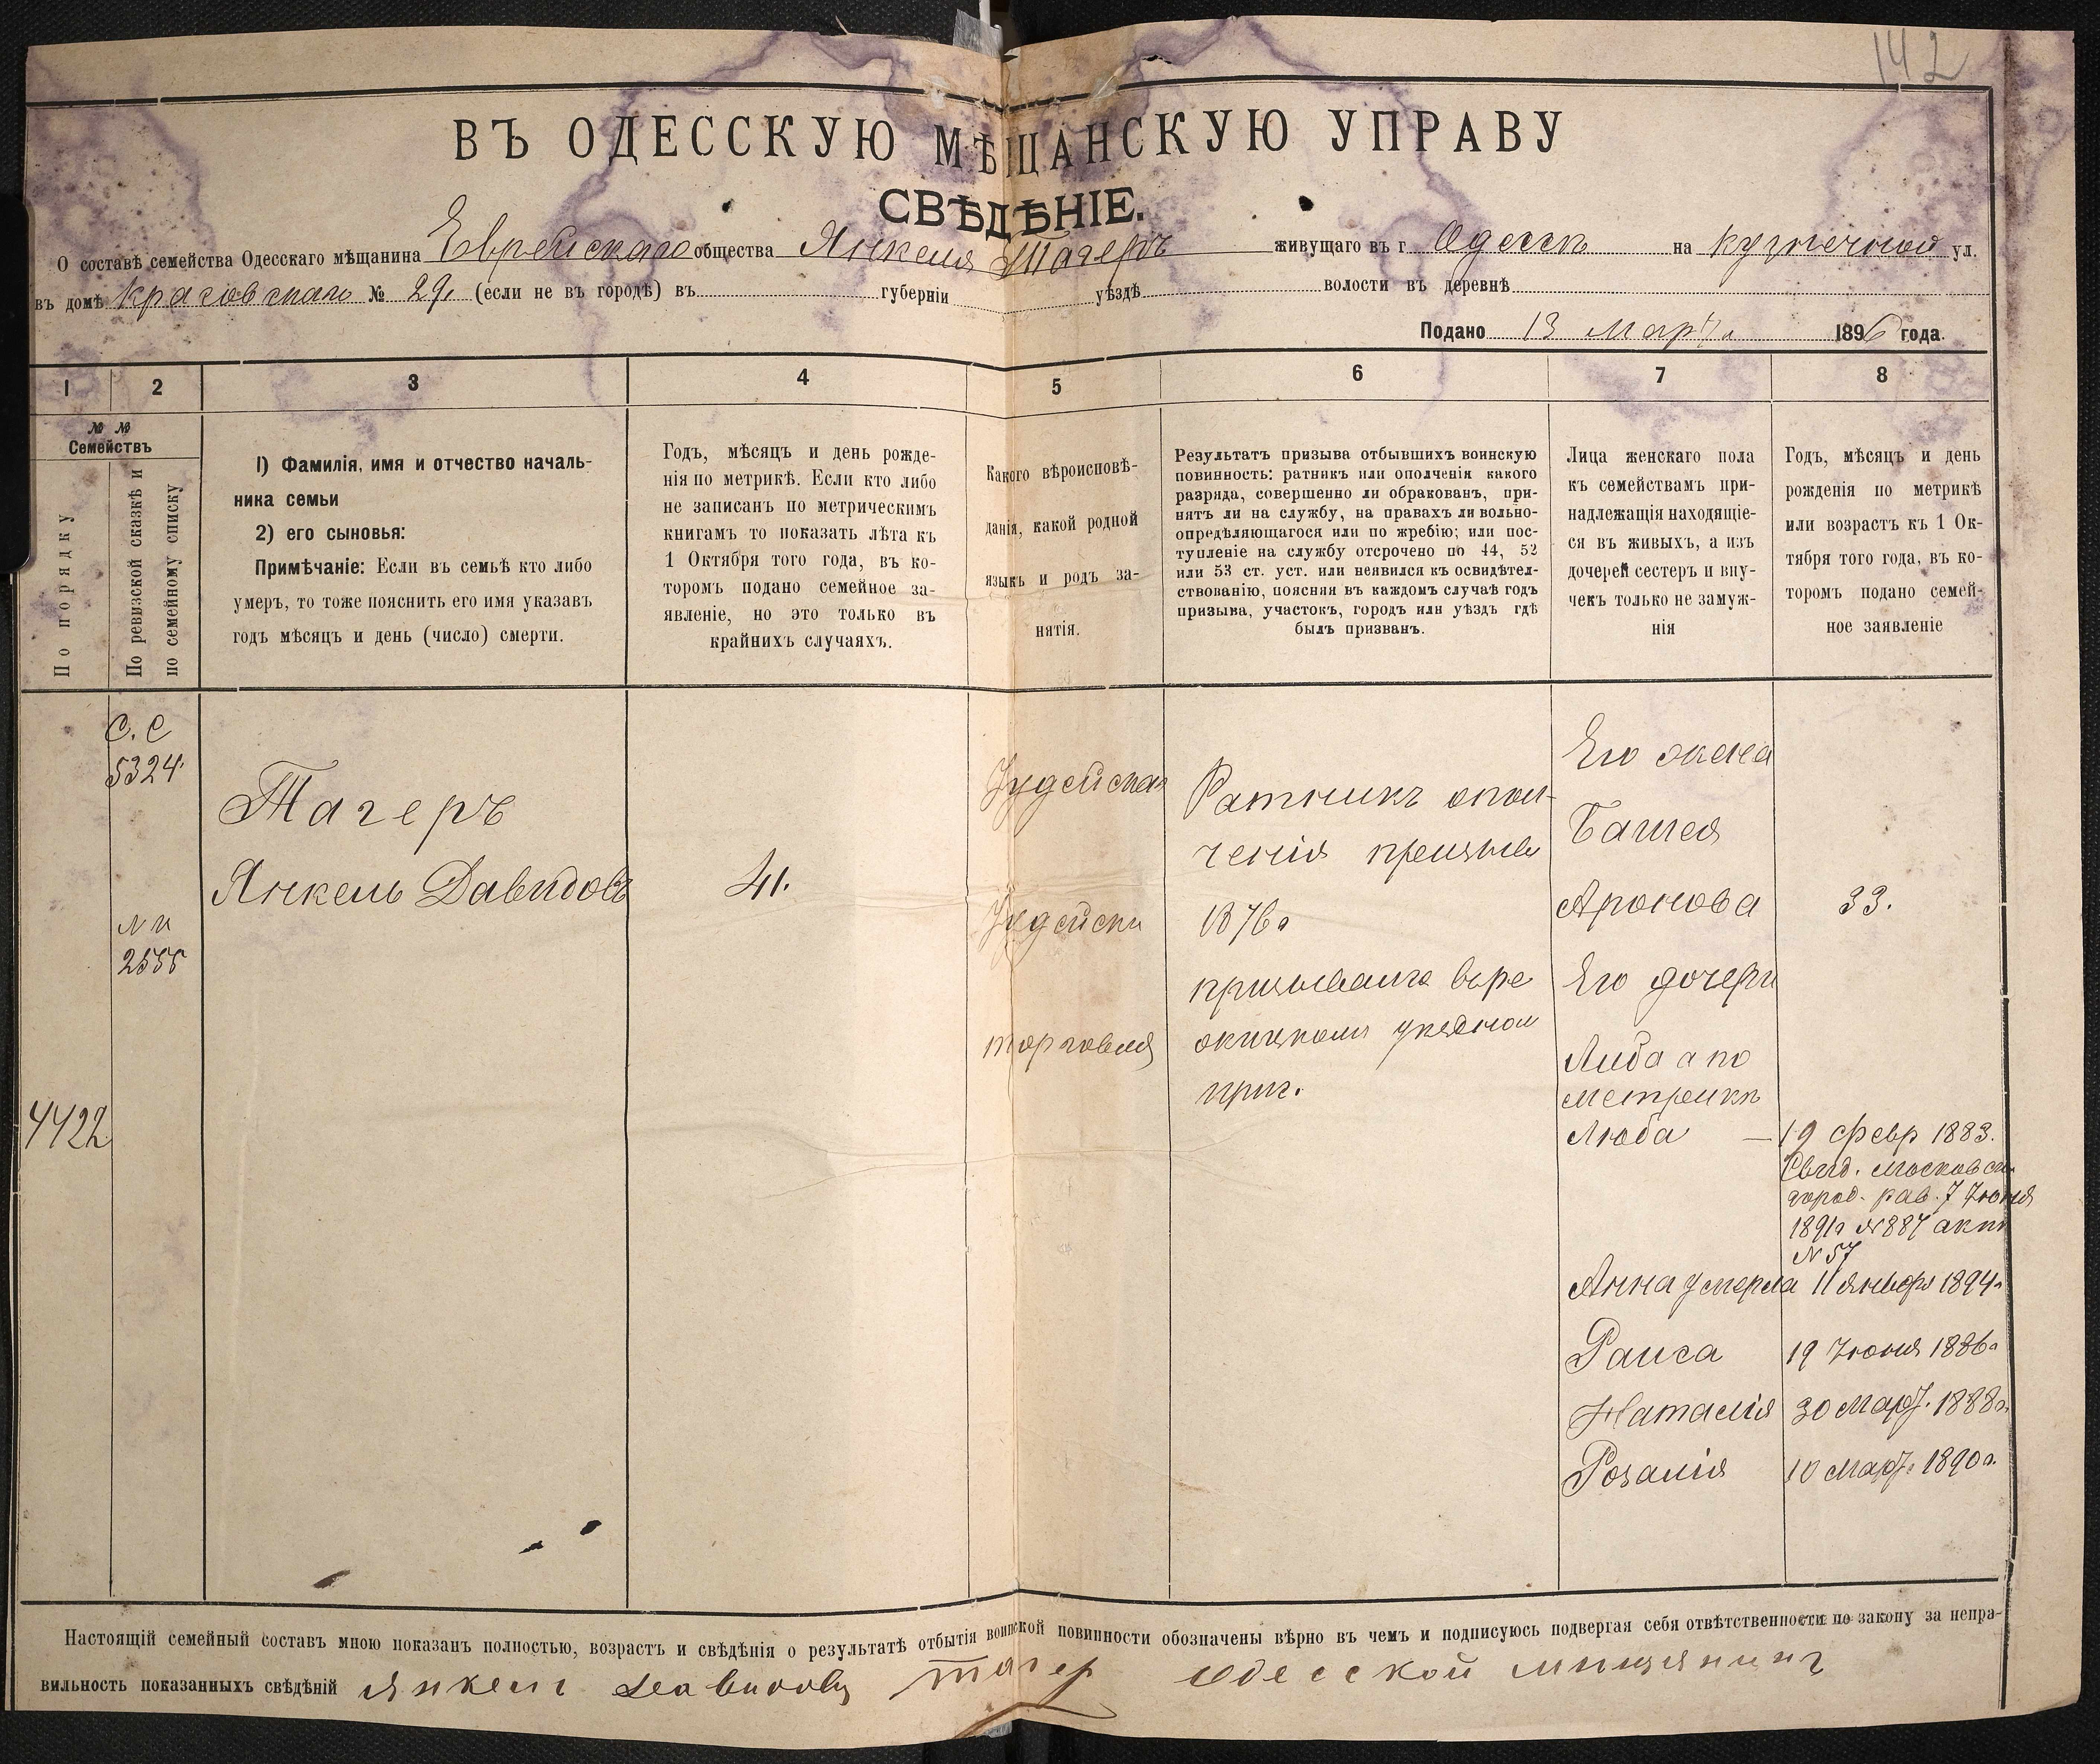 142
ВЪ ОДЕССКУЮ МѢЩАНСКУЮ УПРАВУ
СВѢДѢНІЕ.
О составѣ семейства Одесскаго мѣщанина Еврейскаго общества Янкеля Тагеръ живущаго въ г. Одессѣ на Кузнечной ул.
въ домѣ № 29, (если не въ городѣ) въ губерніи уѣздѣ волости въ деревнѣ
Подано 13 Марта 1896 года.
1 2 3 4 5 6 7 8
№ № Семействъ
По порядку
По ревизской сказкѣ и
по семейному списку
1) Фамилія, имя и отчество началь-
ника семьи
2) его сыновья:
Примѣчаніе: Если въ семьѣ кто либо
умеръ, то тоже пояснить его имя указавъ
годъ мѣсяцъ и день (число) смерти.
Годъ, мѣсяцъ и день рожде-
нія по метрикѣ. Если кто либо
не записанъ по метрическимъ
книгамъ то показать лѣта къ
1 Октября того года, въ ко-
торомъ подано семейное за-
явленіе, но это только въ
крайнихъ случаяхъ.
Какого вѣроисповѣ-
данія, какой родной
языкъ и родъ за-
нятія.
Результатъ призыва отбывшихъ воинскую
повинность: ратникъ или ополченія какого
разряда, совершенно ли обракованъ, при-
нятъ ли на службу, на правахъ ли вольно-
опредѣляющагося или по жребію; или пос-
тупленіе на службу отсрочено по 44, 52
или 53 ст. уст. или неявился къ освидѣтел-
ствованію, поясняя въ каждомъ случаѣ годъ
призыва, участокъ, городъ или уѣздъ гдѣ
былъ призванъ.
Лица женскаго пола
къ семействамъ при-
надлежащія находящіе-
ся въ живыхъ, а изъ
дочерей сестеръ и вну-
чекъ только не замуж-
нія
Годъ, мѣсяцъ и день
рожденія по метрикѣ
или возрастъ къ 1 Ок-
тября того года, въ ко-
торомъ подано семей-
ное заявленіе
С. С
5324
2555
4422
Тагеръ
Янкель Давидовъ
41.
Іудейская
Іудейски
торговля
Ратникъ опол-
ченія призыва
1876г
уѣздном
Его жена
Башея
Аронова
33.
Его дочери
Либа а по
метрикѣ
Люба — 19 февр 1883.
Свид. Московск.
город. рав. 7 Іюня
1891г №887 акт
№57
Анна умерла 11 января 1894г
Раиса 19 Іюня 1886г
Наталія 30 Март. 1888г.
Розалія 10 Март. 1890г.
Настоящій семейный составъ мною показанъ полностью, возрастъ и свѣдѣнія о результатѣ отбытія воинской повинности обозначены вѣрно въ чемъ и подписуюсь подвергая себя отвѣтственности по закону за непра-
вильность показанныхъ свѣдѣній Янкель Давидовъ Тагер Одесской мищянинг